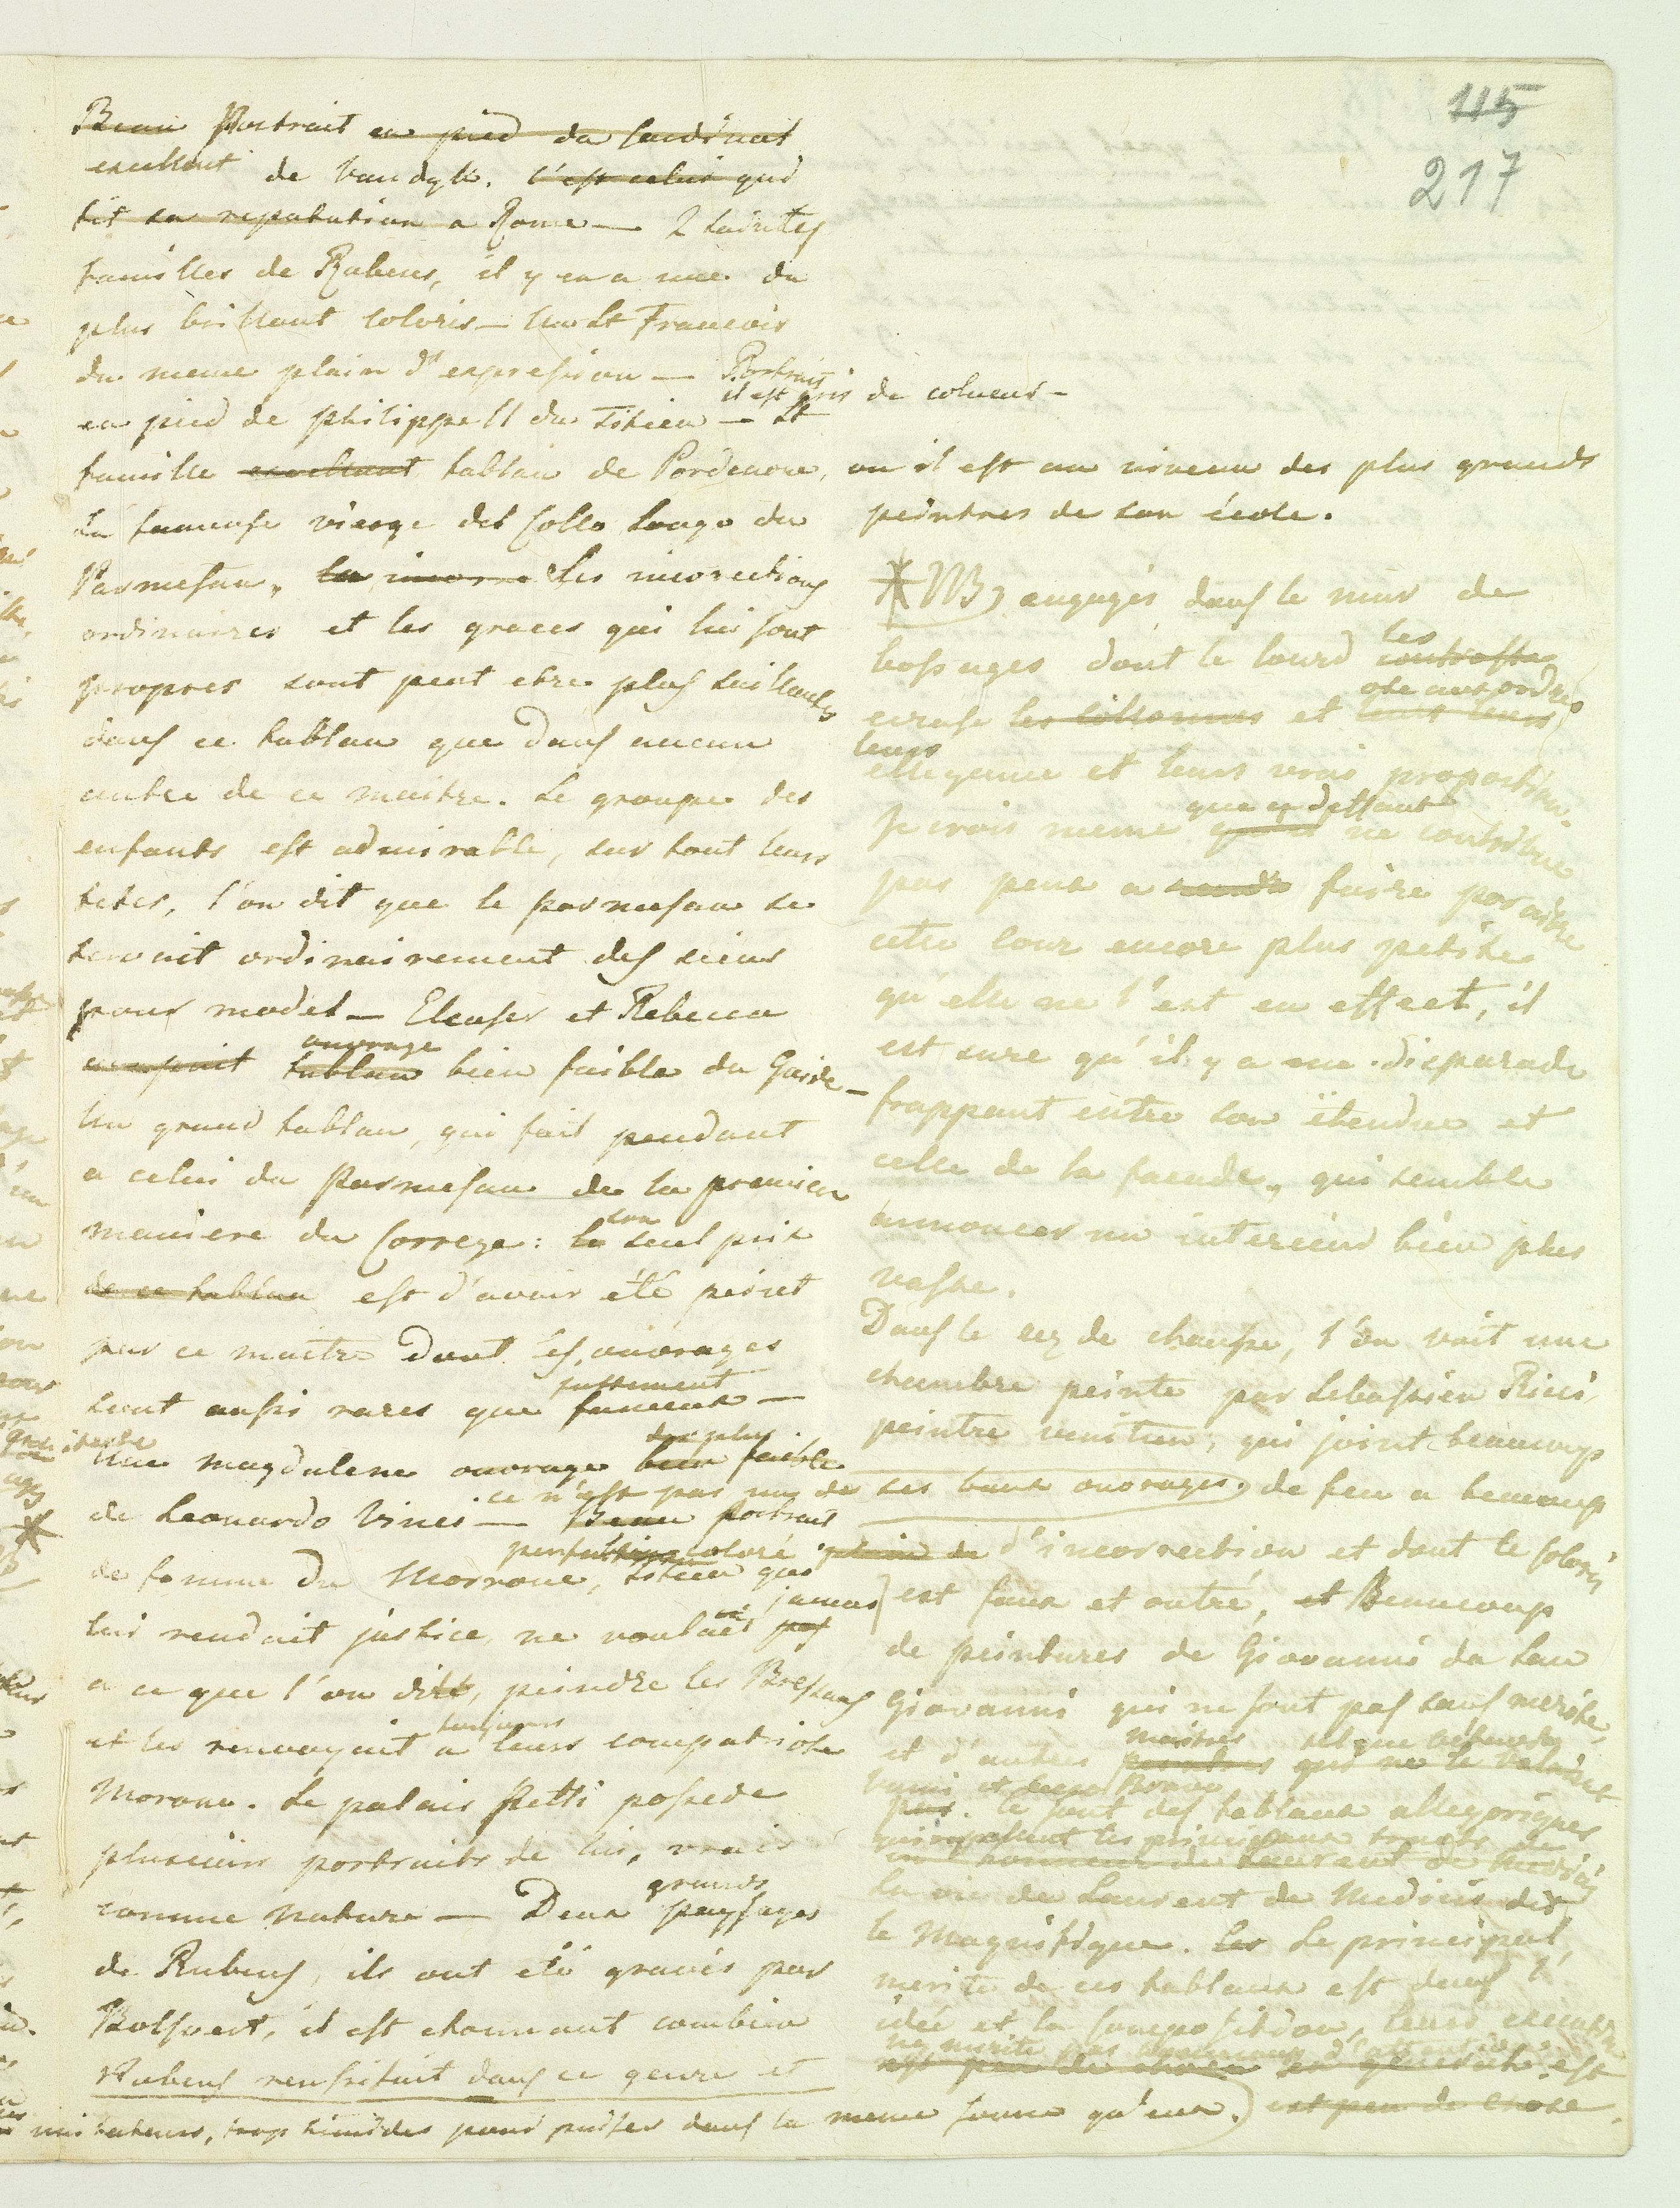 115
217
Beau Portrait en pied du Cardinal
excellent de Vandyk. C'est celui qui
fit sa reputation a Rome — 2 saintes
familles de Rubens, il y en a une du
plus brillant coloris — Un St Francois
du meme plain d'expression — Portrait
en pied de Philippe II du Titien — il est gris de couleur — St
famille excellent tableau de Pordenone, ou il est au niveau des plus grands
peintres de son école.
La fameuse vierge del Collo Longo du
Parmesan, la incorre Les incorections
ordinaires et les graces qui lui sont
propres sont peut etre plus saillantes
dans ce tableau que dans aucun
autre de ce maitre. Le groupe des
enfants est admirable, sur tout leurs
tetes, l'on dit que le parmesan se
servait ordinairement des siens
pour model — Eleaser et Rebecca
tableau ouvrage bien faible du Guide —
Un grand tableau, qui fait pendant
a celui du Parmesan de la premiere
maniere du Correge: le son seul prix
de ce tableau est d'avoir été peint
par ce maitre dont les ouvrages
sont aussi rares que justement fameux —
Une magdalene ouvrage bien faible des plus
de Leonardo Vinci — ce n'est pas un de ses bons ouvrages. Beau portrait
de femme du Morrone, Titien qui
lui rendait justice, ne voulait pas jamais
a ce que l'on dit, peindre les Bressans
et les renvoyait toujours a leurs compatriote
Morone. Le palais Petti possede
plusieurs portraits de lui, vrais
comme nature — Deux grands paysages
de Rubens, ils ont été gravés par
Bolsvert, il est etonnant combien
Rubens reussissait dans ce genre et
imitateurs, trop timides pour puiser dans la meme source qu'eux.
NB) engagés dans le mur de
bossages dont le lourd contraste les
ecrase les collonnes et ote aux ordres
leurs ellegance et leurs vrais proportion.
Je crois meme que ce deffaut ne contribue
pas peux a rendre faire paraitre
cette cour encore plus petite
qu'elle ne l'est en effect, il
est sure qu'il y a une disparade
frappant entre son étendue et
celle de la facade, qui semble
annoncer un interieur bien plus
vaste.
Dans le rez de chausse, l'on voit une
chambre peinte par Sebastien Ricci,
peintre venitien, qui joint beaucoup
de feu a beaucoup
d'incorrection et dont le coloris
est faux et outré, et Beaucoup
de peintures de Giovanni da San
Giovanni qui ne sont pas sans merite,
et d'autres peintres maitres qui ne le valaient
pas. Ce sont des tableaux allegoriques
qui rapellent les principaux traits de
en l'honneur de Laurent de Medicis
la vie de Laurent de Medicis dit
le Magnifique. Les Le principal
merite de ces tableaux est dans l'
idée et la composition, leurs execution
ne merite pas beaucoup d'attention.
est peu de chose.